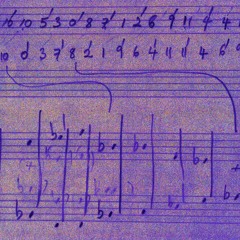 10 10 5 3 0 8 7 1 2 6 9 11 4 4
10 0 3 7 8 2 1 9 6 4 11 11 4 6